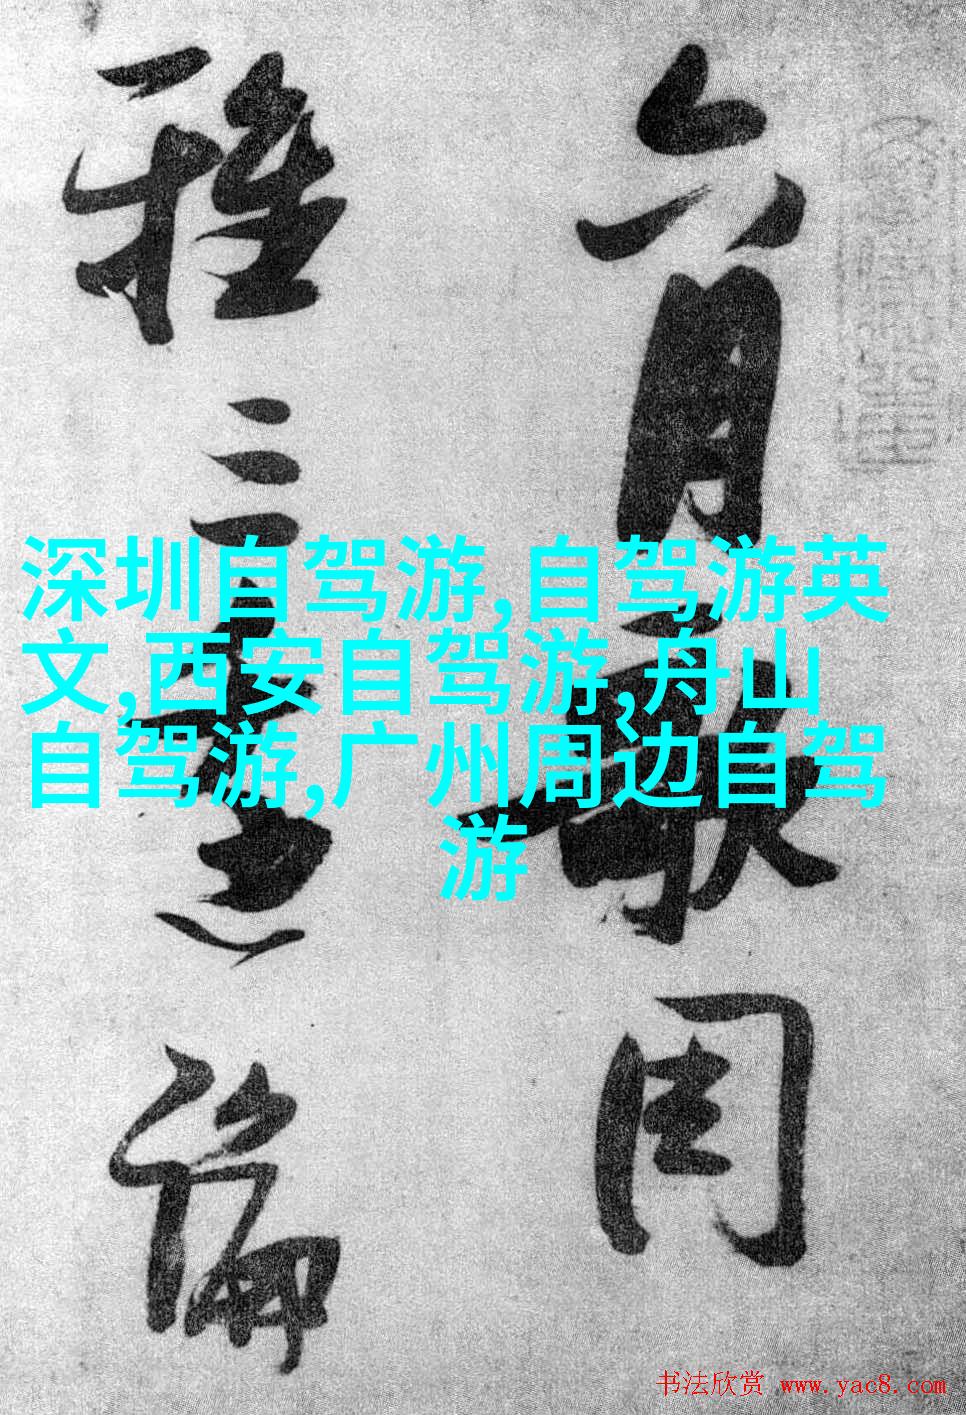 六月歌周
雅三論
深圳自驾游,自驾游英
文,西安自驾游,舟山
自驾游,广州周边自驾
游
书法欣赏 www.yac8.com